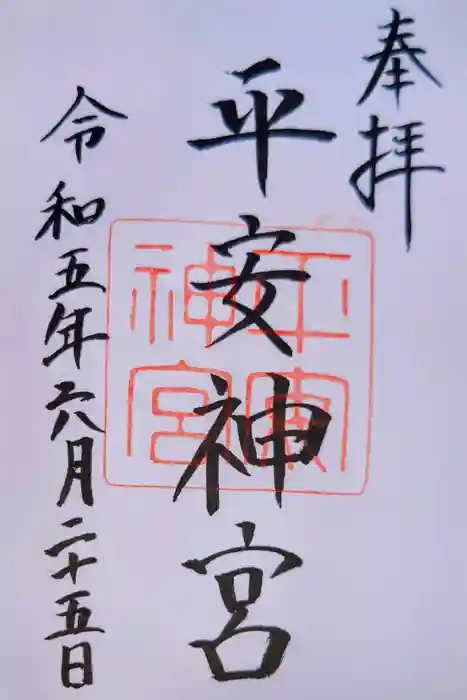 奉拝
平安神宮
平安神宮
令和五年六月二十五日